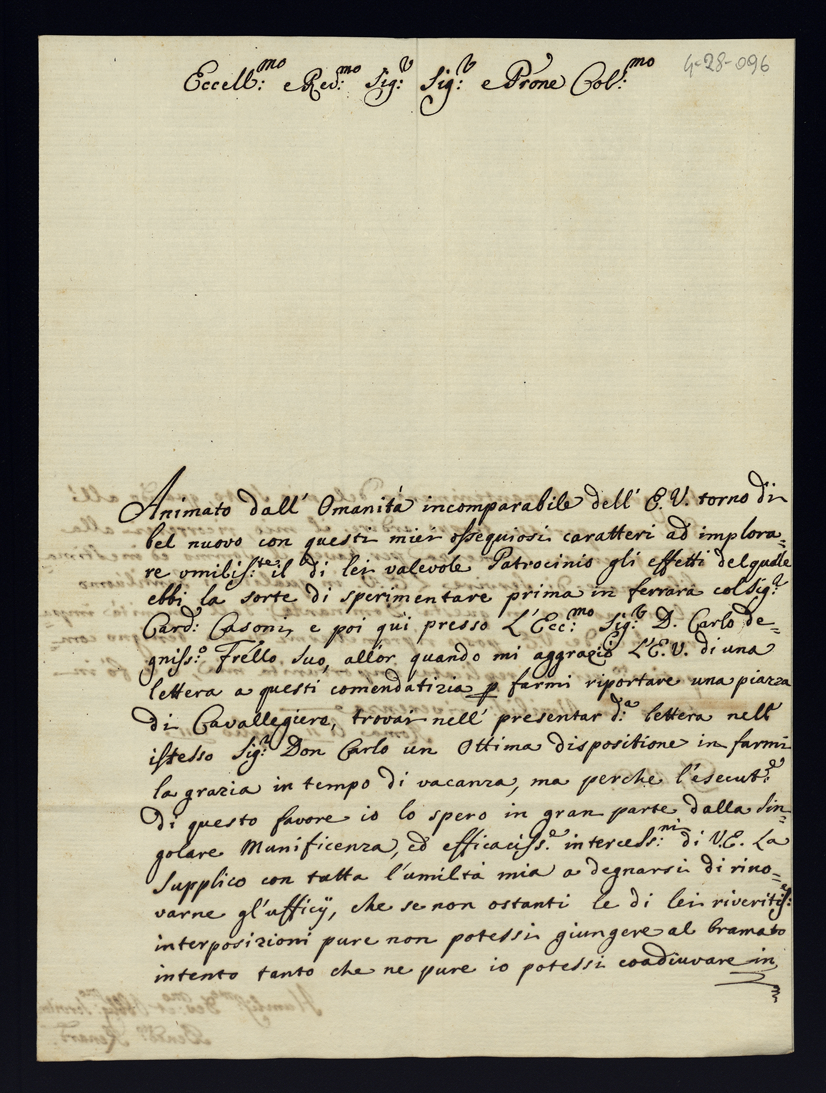 4-28-096
Eccell:mo e Red:mo Sig:r Sig:r e Prone Col:mo
Animato dall' Omanità incomparabile dell' E.V. torno di
bel nuovo con questi miei ossequiosi caratteri ad implora=
re vmilis:te il di lei valevole Patrocinio gli effetti del quale
ebbi la sorte di sperimentare prima in ferrara col Sig:r
Card: Casoni, e poi qui presso L'Ecc:mo Sig:r D. Carlo de=
gniss:o Frello suo, allor quando mi aggraziò L'E.V. di una
lettera a questi comendatizia p farmi riportare una piazza
di Cavallegiere, trovai nell' presentar d:a lettera nell'
istesso Sig:r Don Carlo un Ottima dispositione in farmi
la grazia in tempo di vacanza, ma perche l'esecut:e
di questo favore io lo spero in gran parte dalla sin=
golare Munificenza, ed efficaciss:e intercess:ni di V.E. La
supplico con tutta l'umiltà mia a degnarsi di rino=
varne gl'ufficÿ, che se non ostanti le di lei riveritis:e
interposizioni pure non potessi giungere al bramato
intento tanto che ne pure io potessi coadiuvare in